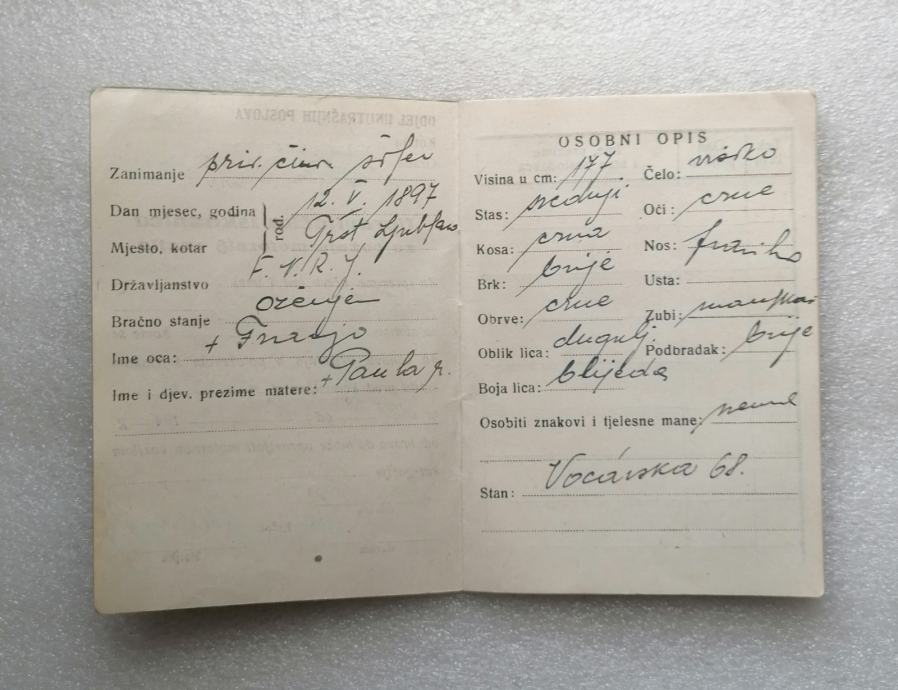 Zanimanje priv. šofer
Dan mjesec, godina rod. 12. V. 1897
Mjesto, kotar Trst Ljubljana
Državljanstvo F. N. R. J.
Bračno stanje oženjen
Ime oca: + Franjo
Ime i djev. prezime matere: + Paula r.
OSOBNI OPIS
Visina u cm: 177 Čelo: visoko
Stas: srednji Oči: crne
Kosa: crna Nos:
Brk: brije Usta:
Obrve: crne Zubi:
Oblik lica: dugulj. Podbradak: brije
Boja lica: blijeda
Osobiti znakovi i tjelesne mane: nema
Stan: Voćarska 68.